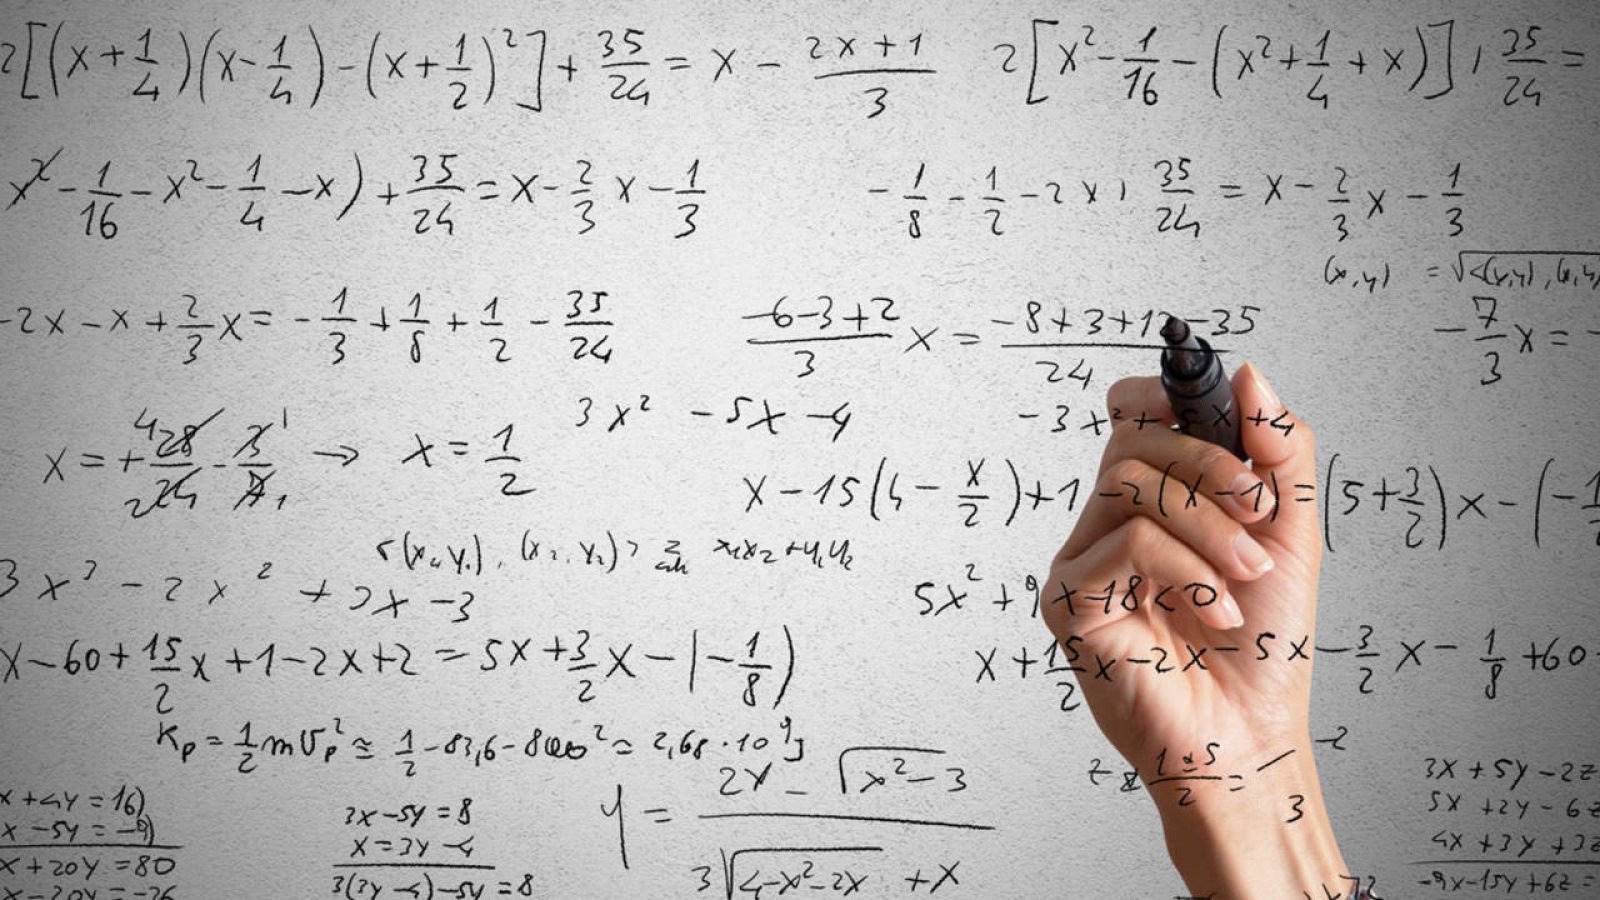 2[(x+1/4)(x-1/4)-(x+1/2)²]+35/24=x-(2x+1)/3
2[x²-1/16-(x²+1/4+x)]+35/24=
x²-1/16-x²-1/4-x)+35/24=x-2/3x-1/3
-1/8-1/2-2x+35/24=x-2/3x-1/3
(x,y) =√<(x,y),(x,y)
-2x-x+2/3x=-1/3+1/8+1/2-35/24
(-6-3+2)/3 x=(-8+3+12-35)/24
-7/3x=-
x=+28/24·3/7 → x=1/2
3x²-5x-4
-3x²+5x+4
x-15(4-x/2)+1-2(x-1)=(5+3/2)x-(-1
<(x₁,y₁),(x₂,y₂)> x₁x₂+y₁y₂
3x³-2x²+2x-3
5x²+9x-18<0
x-60+15/2x+1-2x+2=5x+3/2x-(-1/8)
x+15/2x-2x-5x-3/2x-1/8+60-
Kp=1/2mUp²≅1/2-83,6-800²=2,68·10⁹J
y=(2x-√(x²-3))/(3√(4-x²-2x)+x)
(1±5)/2=
-2
3
x+4y=16)
x-5y=-9)
x+20y=80
x-20y=-36
3x-5y=8
x=3y-4
3(3y-4)-5y=8
3x+5y-2z
5x+2y-6z
4x+3y+3z
-9x-15y+6z=